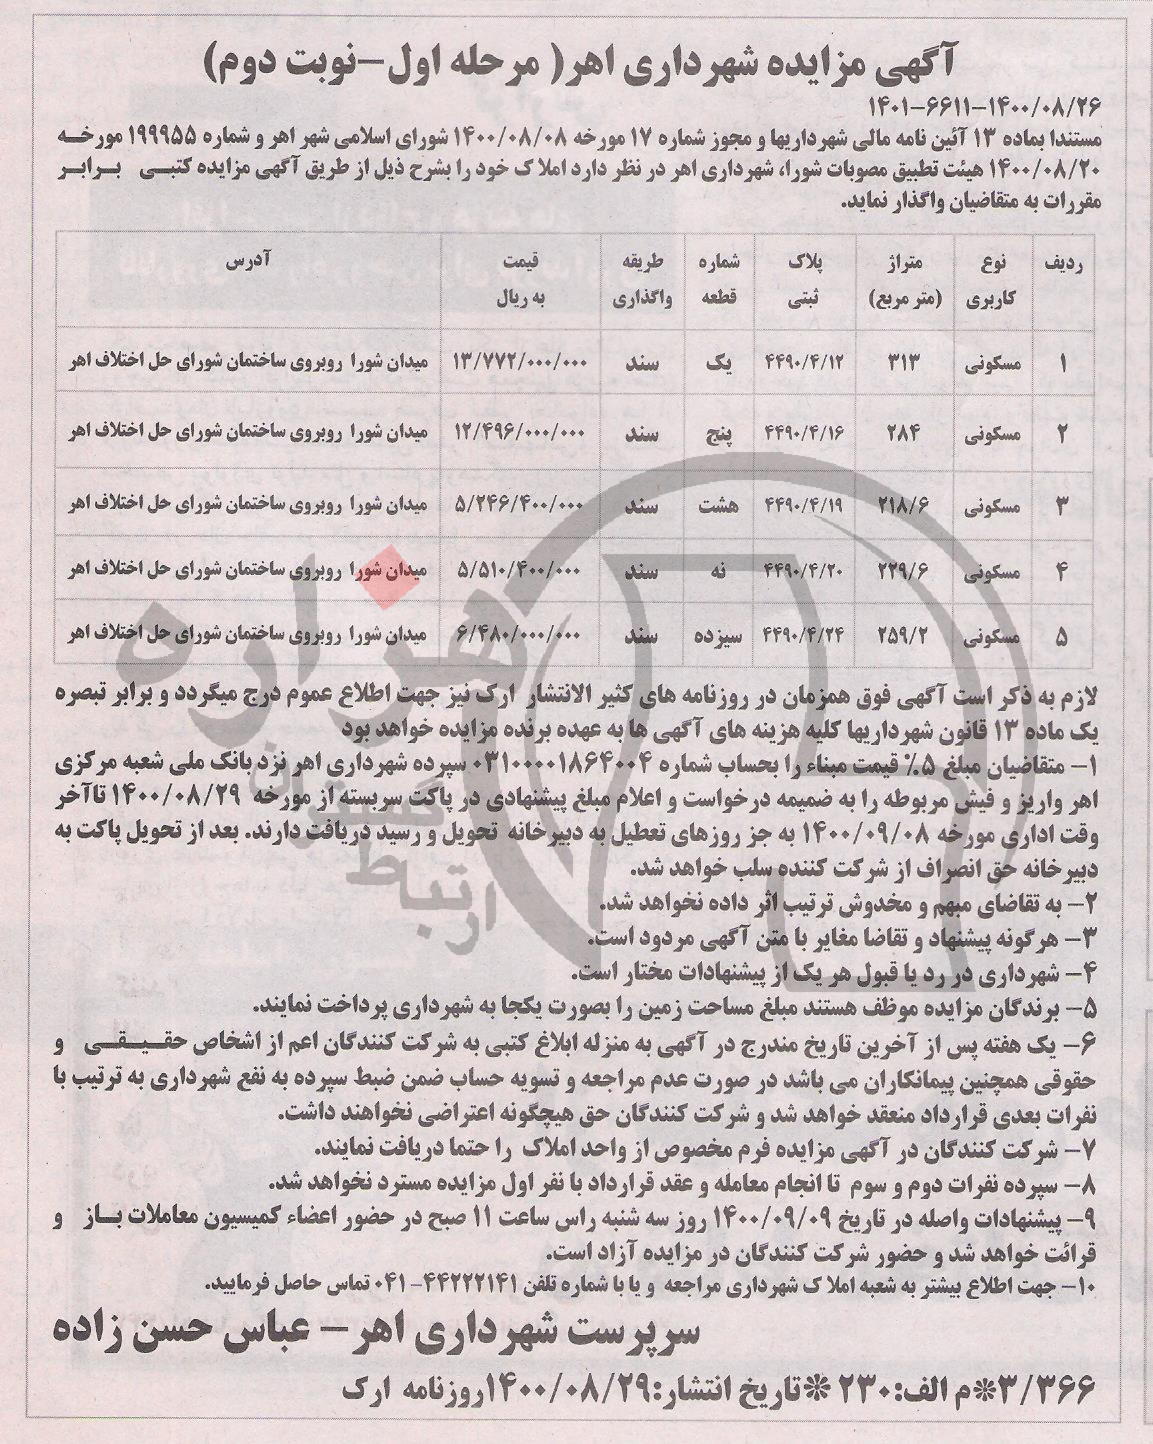 آگهی مزایده شهرداری اهر( مرحله اول-نوبت دوم)
۱۴۰۱-۶۶۱۱-۱۴۰۰/۰۸/۲۶
مستندا بماده ۱۳ آئین نامه مالی شهرداریها و مجوز شماره ۱۷ مورخه ۱۴۰۰/۰۸/۰۸ شورای اسلامی شهر اهر و شماره ۱۹۹۹۵۵ مورخه
۱۴۰۰/۰۸/۲۰ هیئت تطبیق مصوبات شورا، شهرداری اهر در نظر دارد املاک خود را بشرح ذیل از طریق آگهی مزایده کتبی برابر
مقررات به متقاضیان واگذار نماید.
ردیف نوع کاربری متراژ (متر مربع) پلاک ثبتی شماره قطعه طریقه واگذاری قیمت به ریال آدرس
۱ مسکونی ۳۱۳ ۴۴۹۰/۴/۱۲ یک سند ۱۳/۷۷۲/۰۰۰/۰۰۰ میدان شورا روبروی ساختمان شورای حل اختلاف اهر
۲ مسکونی ۲۸۴ ۴۴۹۰/۴/۱۶ پنج سند ۱۲/۴۹۶/۰۰۰/۰۰۰ میدان شورا روبروی ساختمان شورای حل اختلاف اهر
۳ مسکونی ۲۱۸/۶ ۴۴۹۰/۴/۱۹ هشت سند ۵/۲۴۶/۴۰۰/۰۰۰ میدان شورا روبروی ساختمان شورای حل اختلاف اهر
۴ مسکونی ۲۲۹/۶ ۴۴۹۰/۴/۲۰ نه سند ۵/۵۱۰/۴۰۰/۰۰۰ میدان شورا روبروی ساختمان شورای حل اختلاف اهر
۵ مسکونی ۲۵۹/۲ ۴۴۹۰/۴/۲۴ سیزده سند ۶/۴۸۰/۰۰۰/۰۰۰ میدان شورا روبروی ساختمان شورای حل اختلاف اهر
لازم به ذکر است آگهی فوق همزمان در روزنامه های کثیر الانتشار ارک نیز جهت اطلاع عموم درج میگردد و برابر تبصره
یک ماده ۱۳ قانون شهرداریها کلیه هزینه های آگهی ها به عهده برنده مزایده خواهد بود
۱- متقاضیان مبلغ ۵٪ قیمت مبناء را بحساب شماره ۰۳۱۰۰۰۰۱۸۶۴۰۰۴ سپرده شهرداری اهر نزد بانک ملی شعبه مرکزی
اهر واریز و فیش مربوطه را به ضمیمه درخواست و اعلام مبلغ پیشنهادی در پاکت سربسته از مورخه ۱۴۰۰/۰۸/۲۹ تاآخر
وقت اداری مورخه ۱۴۰۰/۰۹/۰۸ به جز روزهای تعطیل به دبیرخانه تحویل و رسید دریافت دارند. بعد از تحویل پاکت به
دبیرخانه حق انصراف از شرکت کننده سلب خواهد شد.
۲- به تقاضای مبهم و مخدوش ترتیب اثر داده نخواهد شد.
۳- هرگونه پیشنهاد و تقاضا مغایر با متن آگهی مردود است.
۴- شهرداری در رد یا قبول هر یک از پیشنهادات مختار است.
۵- برندگان مزایده موظف هستند مبلغ مساحت زمین را بصورت یکجا به شهرداری پرداخت نمایند.
۶- یک هفته پس از آخرین تاریخ مندرج در آگهی به منزله ابلاغ کتبی به شرکت کنندگان اعم از اشخاص حقیقی و
حقوقی همچنین پیمانکاران می باشد در صورت عدم مراجعه و تسویه حساب ضمن ضبط سپرده به نفع شهرداری به ترتیب با
نفرات بعدی قرارداد منعقد خواهد شد و شرکت کنندگان حق هیچگونه اعتراضی نخواهند داشت.
۷- شرکت کنندگان در آگهی مزایده فرم مخصوص از واحد املاک را حتما دریافت نمایند.
۸- سپرده نفرات دوم و سوم تا انجام معامله و عقد قرارداد با نفر اول مزایده مسترد نخواهد شد.
۹- پیشنهادات واصله در تاریخ ۱۴۰۰/۰۹/۰۹ روز سه شنبه راس ساعت ۱۱ صبح در حضور اعضاء کمیسیون معاملات باز و
قرائت خواهد شد و حضور شرکت کنندگان در مزایده آزاد است.
۱۰- جهت اطلاع بیشتر به شعبه املاک شهرداری مراجعه و یا با شماره تلفن ۴۴۲۲۲۱۴۱-۰۴۱ تماس حاصل فرمایید.
سرپرست شهرداری اهر- عباس حسن زاده
۳/۳۶۶*م الف:۲۳۰ *تاریخ انتشار:۱۴۰۰/۰۸/۲۹روزنامه ارک
هزاره
ارتباط